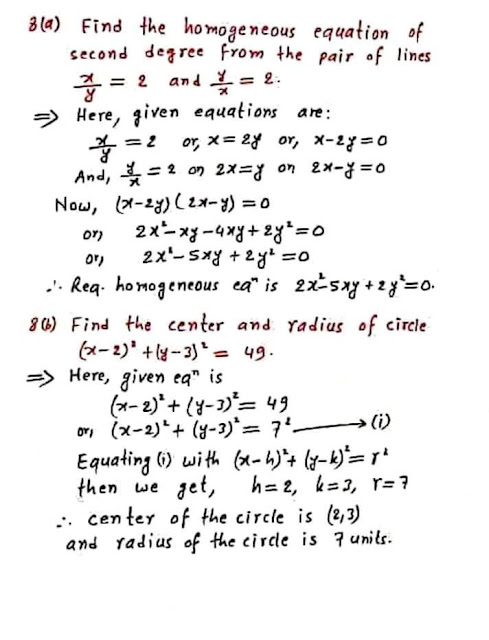 8(a) Find the homogeneous equation of
second degree from the pair of lines
x/y = 2 and y/x = 2.
⇒ Here, given equations are:
x/y = 2 or, x = 2y or, x-2y=0
And, y/x = 2 or 2x=y or 2x-y=0
Now, (x-2y)(2x-y) = 0
or, 2x²-xy-4xy+2y²=0
or, 2x²-5xy+2y²=0
∴ Req. homogeneous eqⁿ is 2x²-5xy+2y²=0.
8(b) Find the center and radius of circle
(x-2)²+(y-3)² = 49.
⇒ Here, given eqⁿ is
(x-2)²+(y-3)²= 49
or, (x-2)²+(y-3)²= 7² → (i)
Equating (i) with (x-h)²+(y-k)²=r²
then we get, h=2, k=3, r=7
∴ center of the circle is (2,3)
and radius of the circle is 7 units.